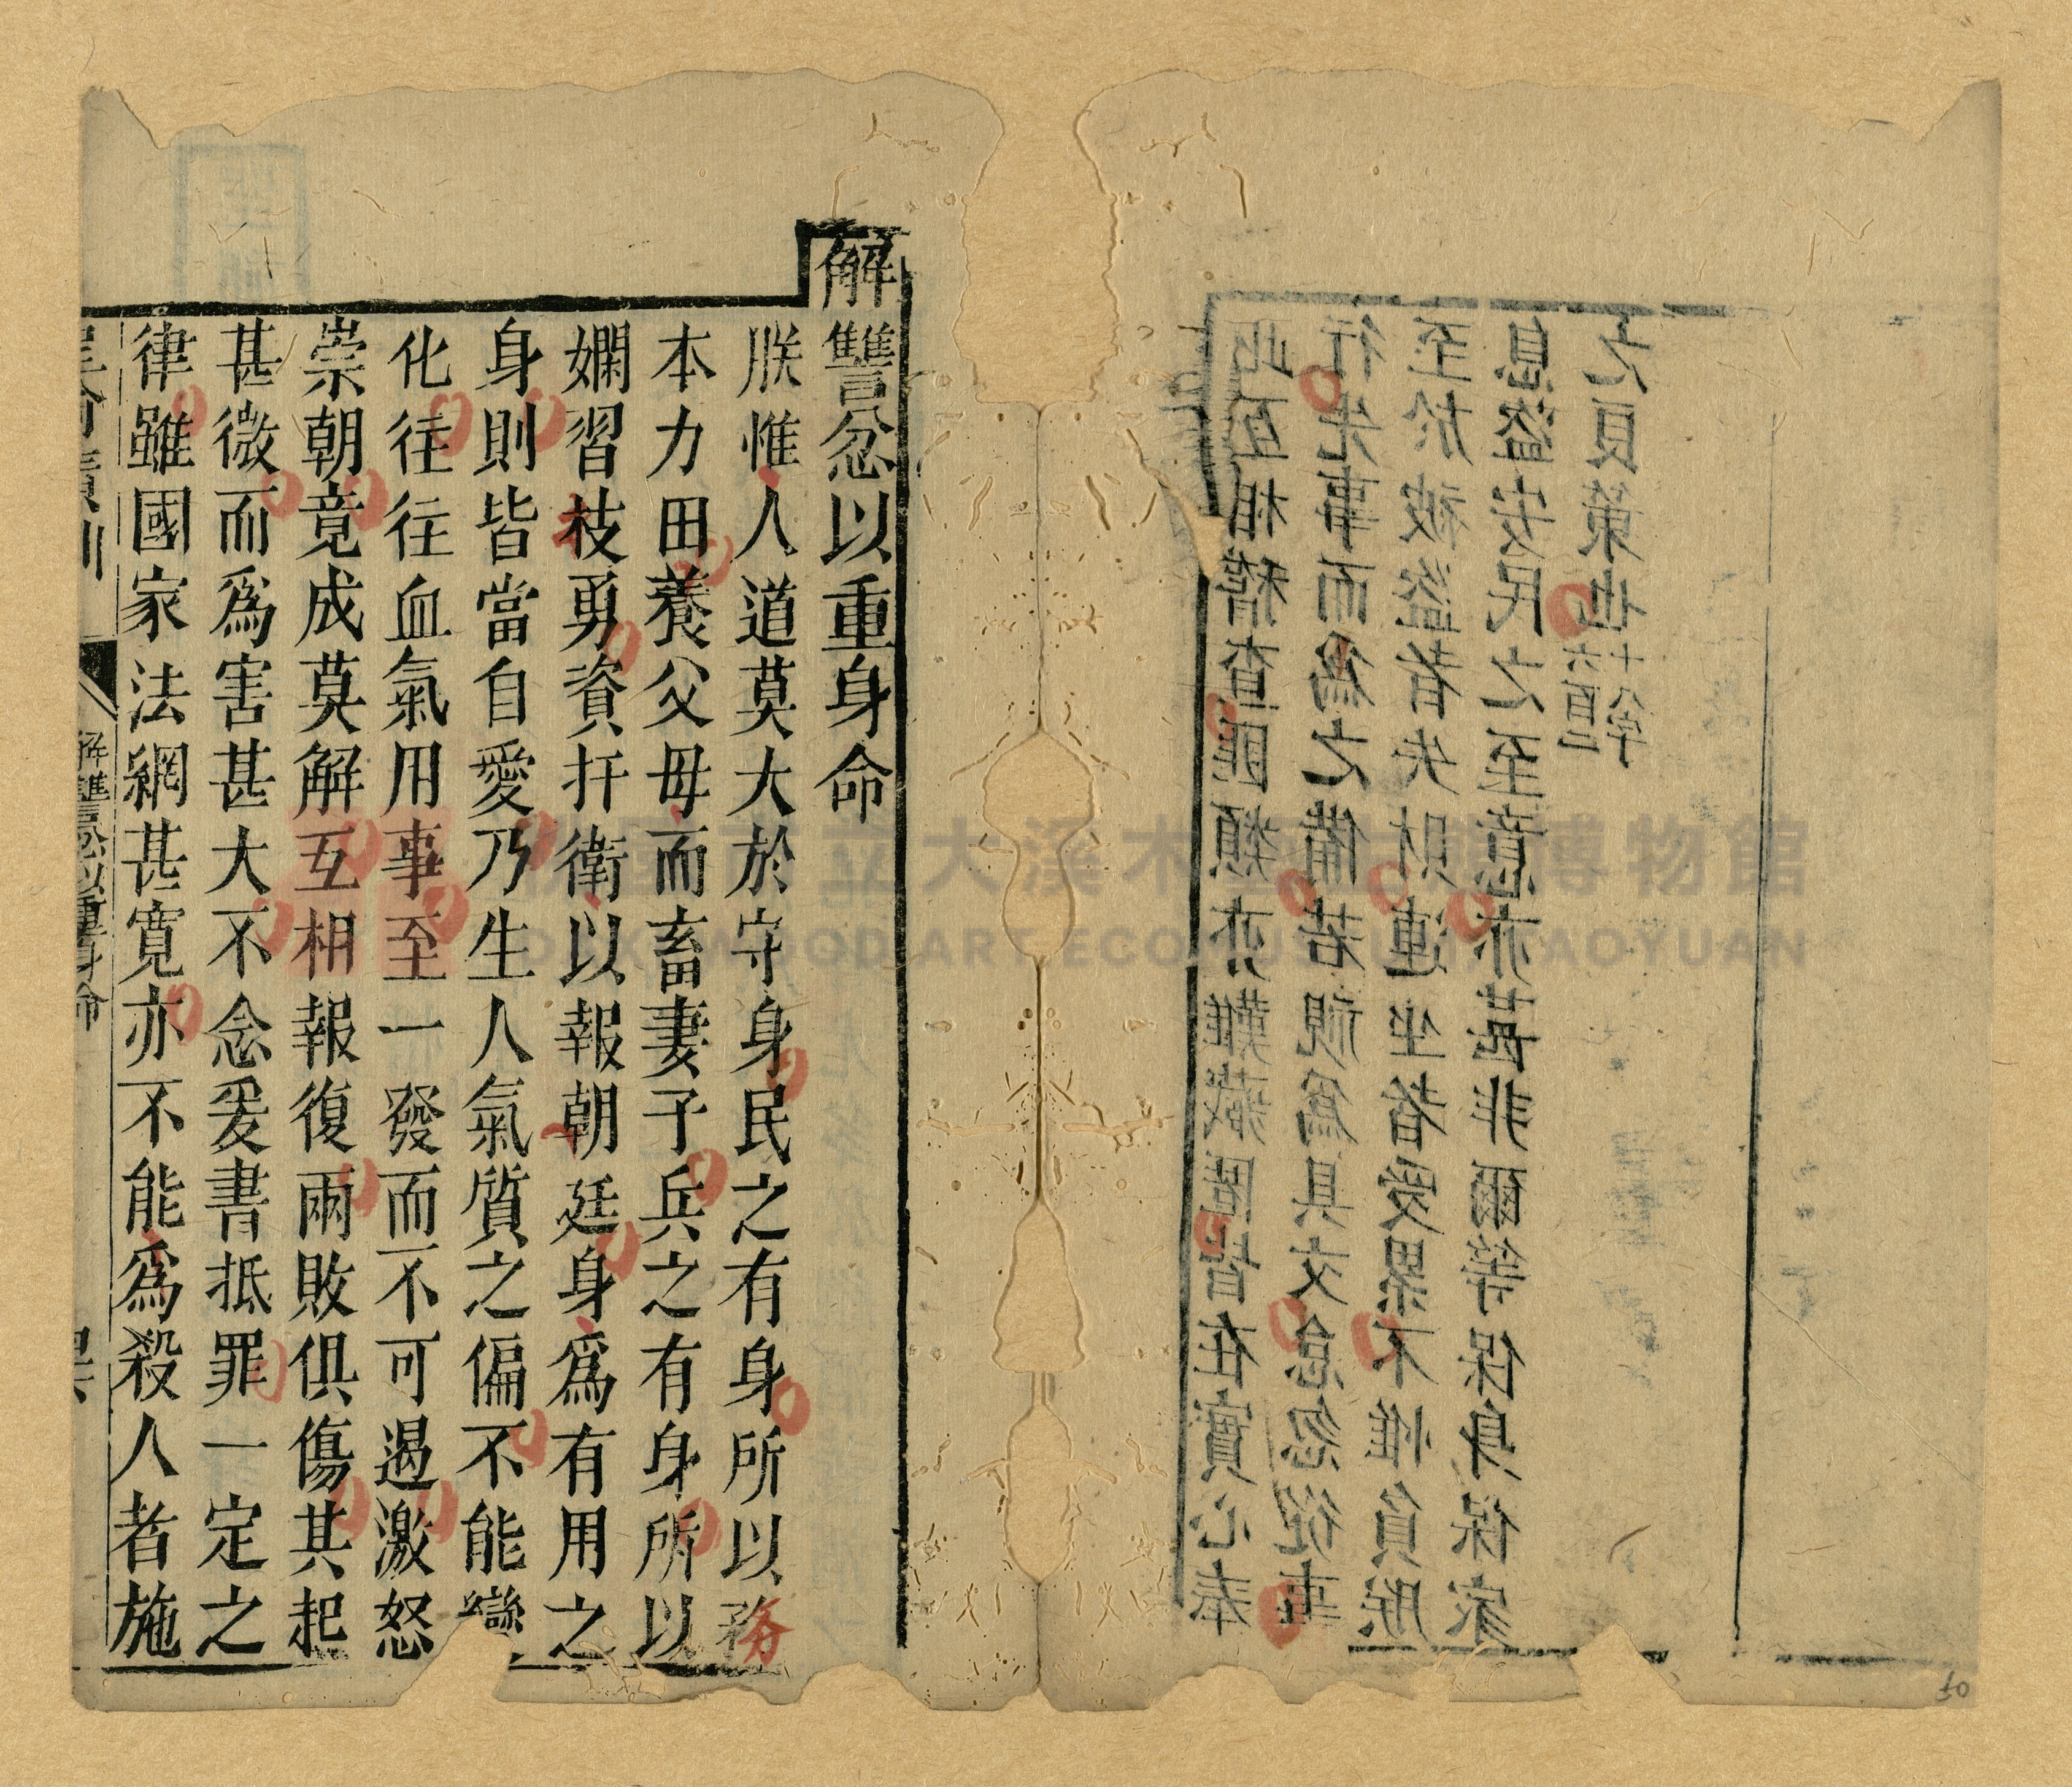 此互相稽查匪類亦難藏匿皆在實心奉
行先事而爲之備若視爲具文怠忽從事
至於被盜者失財連坐者受累不惟負朕
息盜安民之至意亦甚非爾等保身保家
之良策也
六百二
十八字
解讐忿以重身命
朕惟人道莫大於守身民之有身所以務
本力田養父母而畜妻子兵之有身所以
嫻習枝勇資扞衛以報朝廷身爲有用之
身則皆當自愛乃生人氣質之偏不能變
化往往血氣用事至一發而不可遏激怒
崇朝竟成莫解互相報復兩敗俱傷其起
甚微而爲害甚大不念爰書抵罪一定之
律雖國家法網甚寬亦不能爲殺人者施
聖諭廣訓
解讐忿以重身命
大溪木 博物館
50